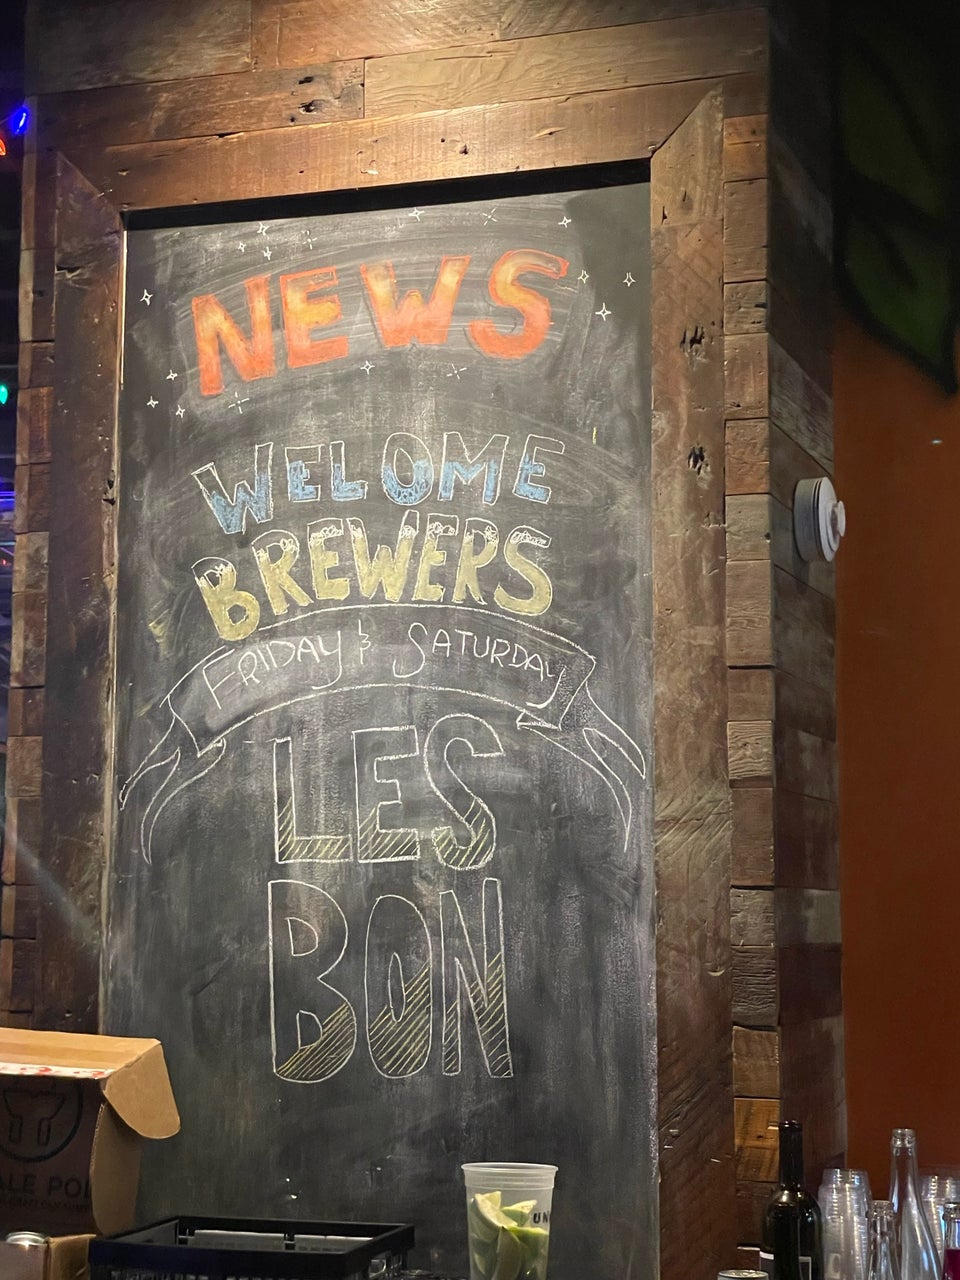 NEWS
WELOME
BREWERS
FRIDAY & SATURDAY
LES
BON
ALE POI
UN